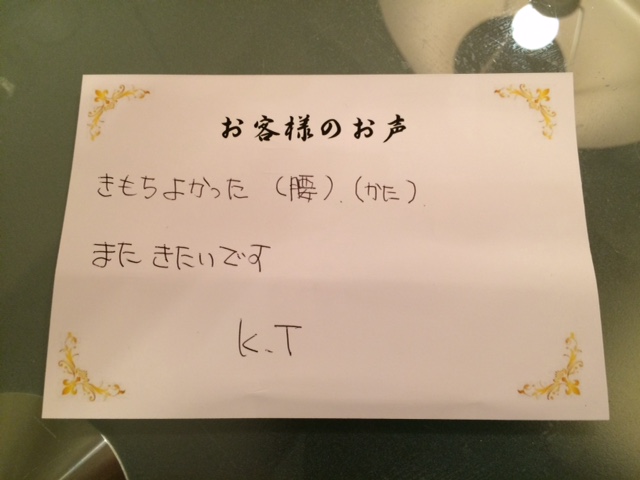 お客様のお声
きもちよかった (腰). (かた).
また きたいです
K.T